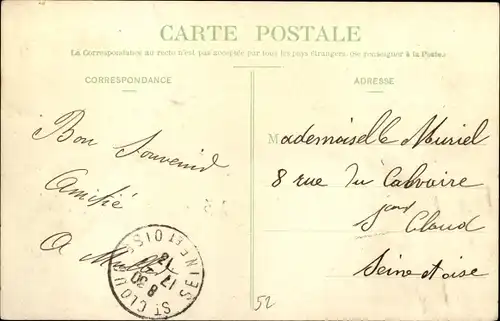 CARTE POSTALE
La Correspondance au recto n'est pas acceptée par tous les pays étrangers (Se renseigner à la Poste)
CORRESPONDANCE
ADRESSE
Bon Souvenir
Amitié
A
Mademoiselle Muriel
8 rue du Calvaire
Cloud
Seine et oise
ST CLOUD
SEINE ET OISE
8 30
17
12
52